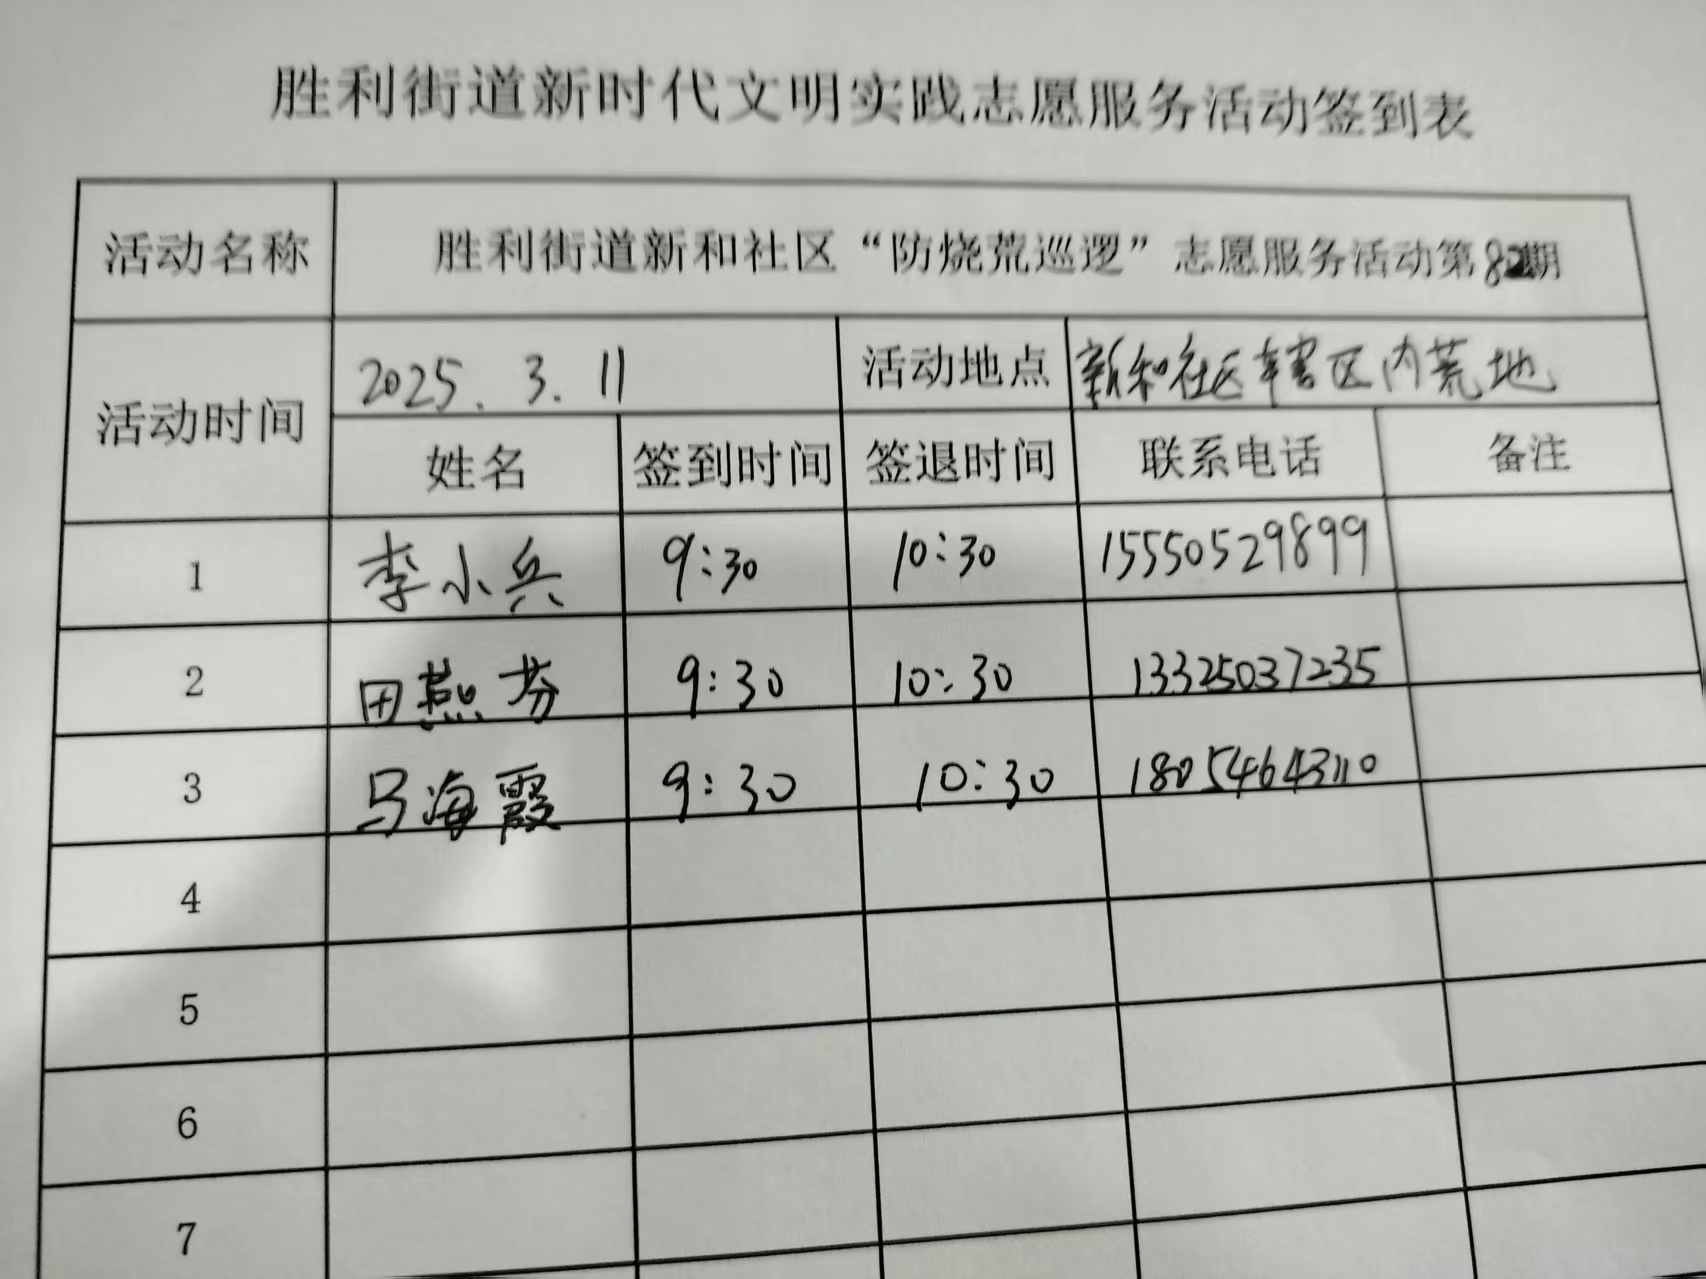 胜利街道新时代文明实践志愿服务活动签到表
活动名称 胜利街道新和社区“防烧荒巡逻”志愿服务活动第82期
活动时间 2025.3.11 活动地点 新和社区辖区内荒地
姓名 签到时间 签退时间 联系电话 备注
1 李小兵 9:30 10:30 15550529899
2 田燕芬 9:30 10:30 13325037235
3 马海霞 9:30 10:30 18054643110
4
5
6
7